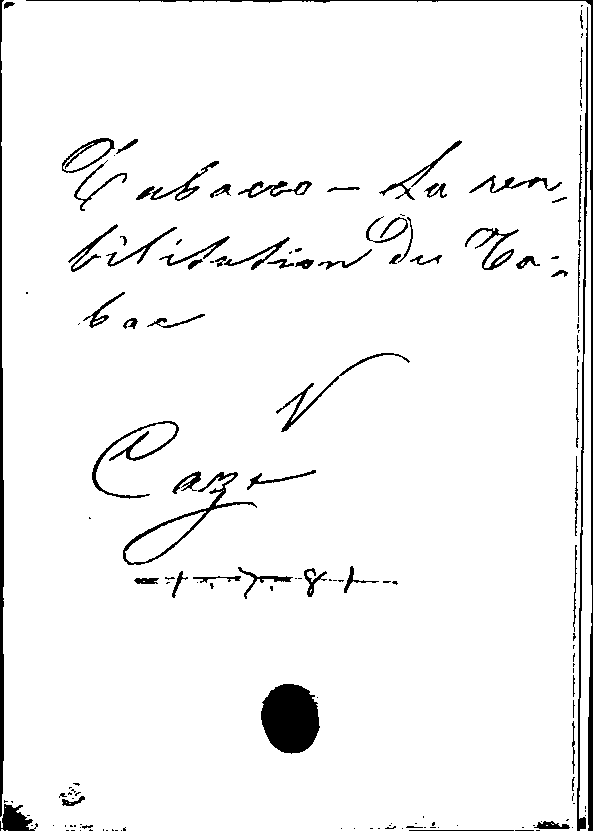 Tabacco – La reha-
bilitation du Ta-
bac
V
Caze
1.7.81